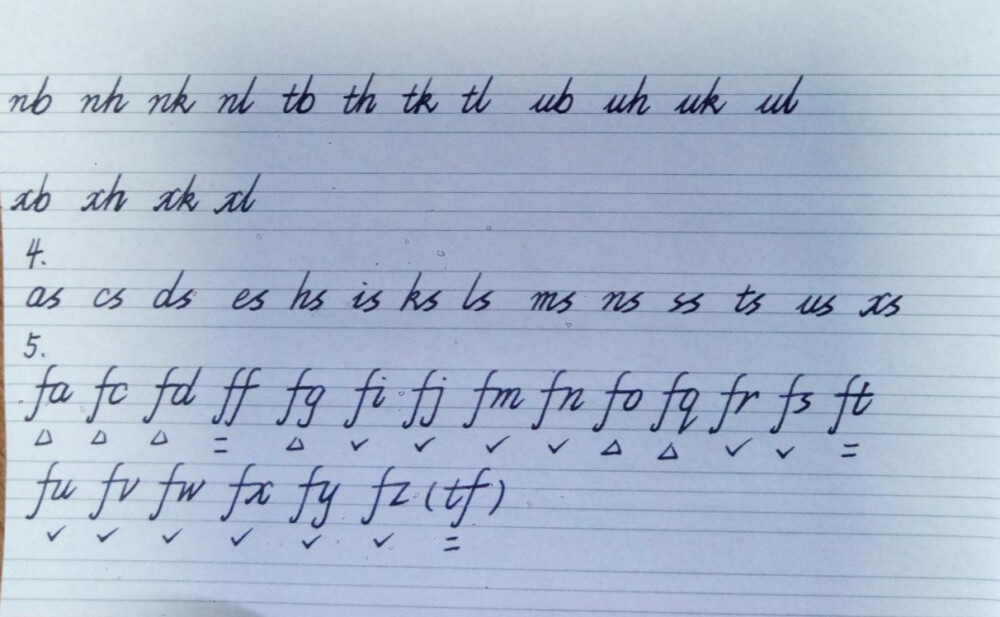 nb nh nk nl tb th tk tl ub uh uk ul
xb xh xk xl
4.
as cs ds es hs is ks ls ms ns ss ts us xs
5.
fa fc fd ff fg fi fj fm fn fo fq fr fs ft
△ △ △ = △ ✓ ✓ ✓ ✓ △ △ ✓ ✓ =
fu fv fw fx fy fz (tf)
✓ ✓ ✓ ✓ ✓ ✓ =